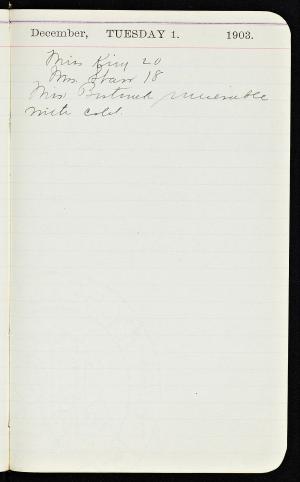 December, TUESDAY 1. 1903.
Miss King 20
Mrs. Starr 18
Mrs. miserable
with cold.